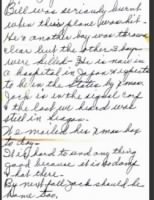 Bill was seriously burnt
when their plane was hit.
He & another boy was thrown
clear but the other 3 boys
were killed. He is now in
a hospital in Japan & expects
to be in the States by Xmas.
Jack is in the signal corps
& the last we heard was
still in
We mailed his Xmas box
to-day.
It's hard to send any thing
good because it is so damp
that there.
By next fall Jack should be
home too.